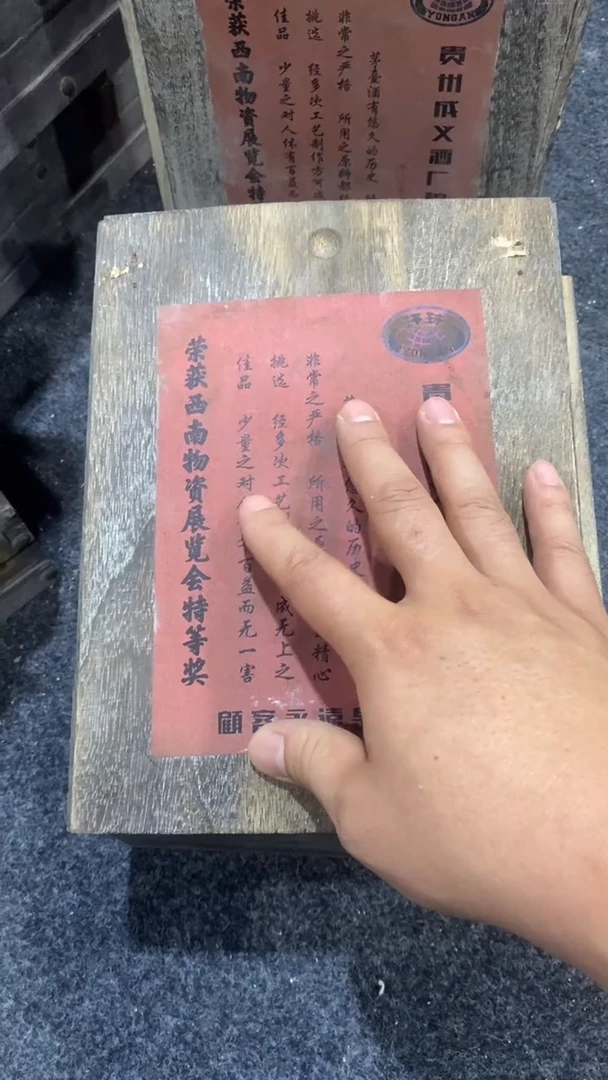 YONGAN
贵州成义酒厂
茅台酒有悠久的历史
非常之严格 所用之原料都
挑选 经多次工艺制作方可
佳品 少量之对人体有百益
荣获西南物资展览会特
环球
贵
悠久的历史
非常之严格 所用之 精心
挑选 经多次工艺 成无上之
佳品 少量之对 百益而无一害
荣获西南物资展览会特等奖
顧客永遠